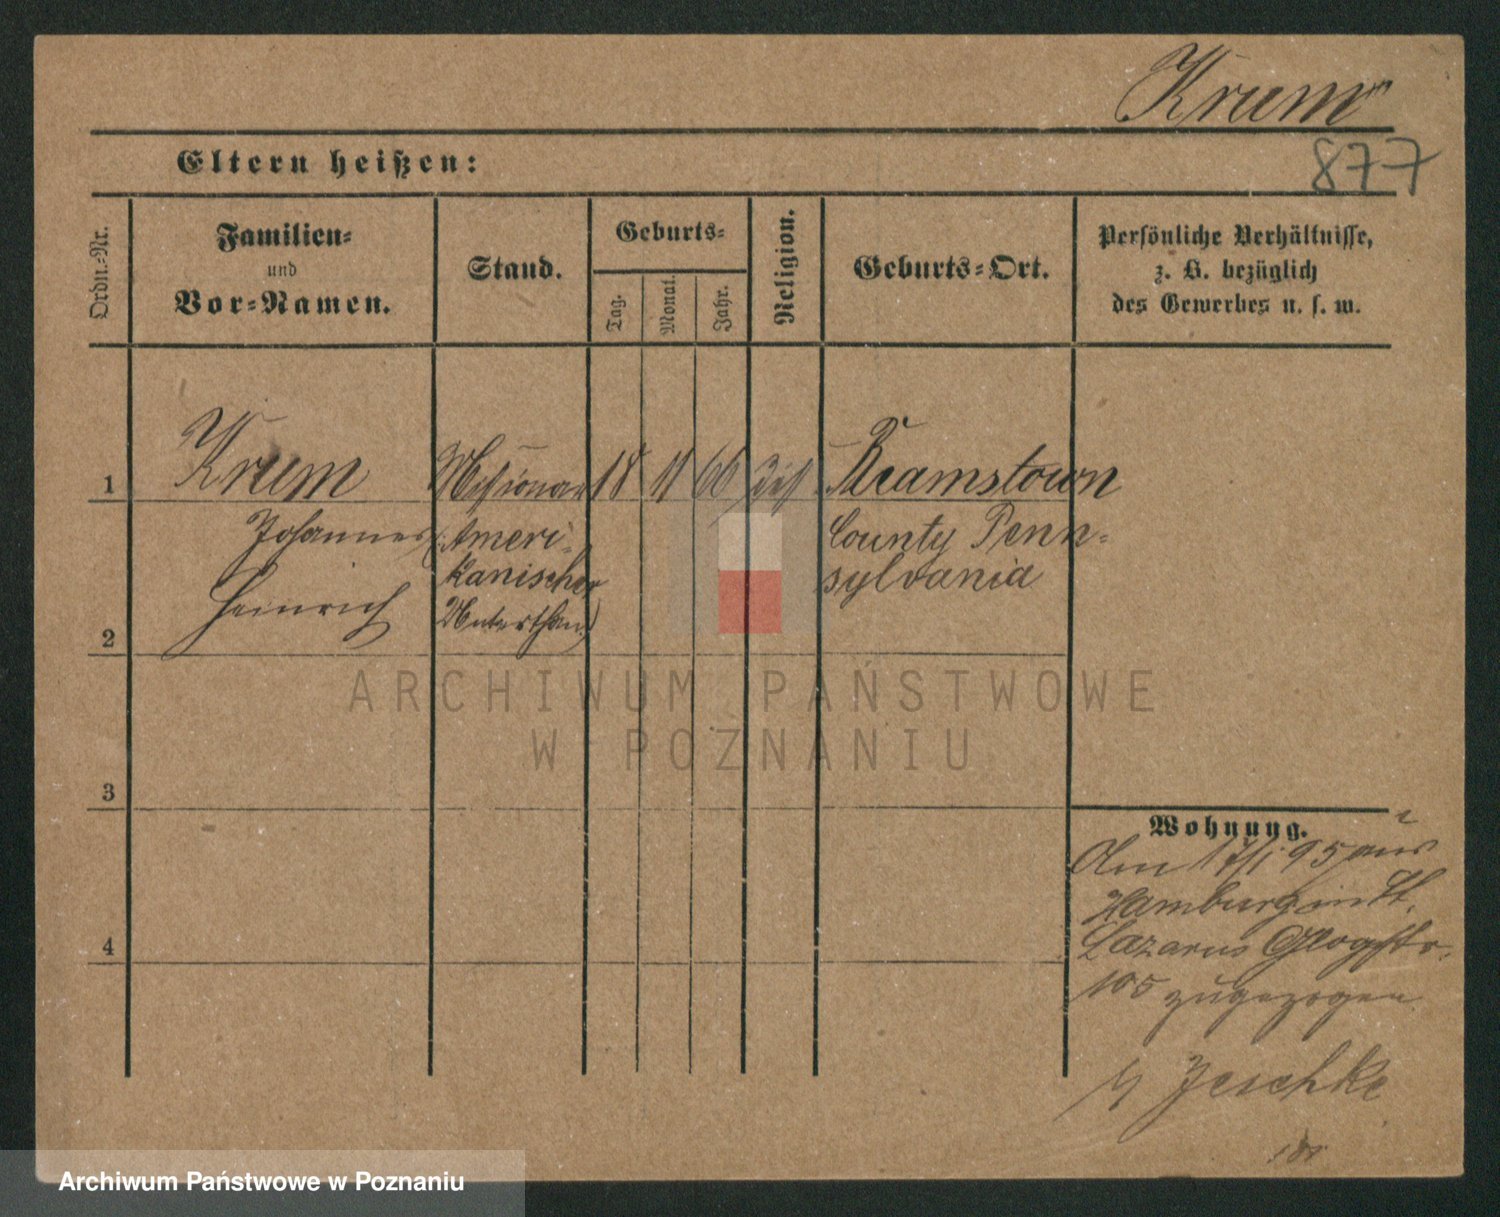 Krum
877
Eltern heißen:
Ordn.-Nr.
Familien-
und
Vor-Namen.
Stand.
Geburts-
Tag.
Monat.
Jahr.
Religion.
Geburts-Ort.
Persönliche Verhältnisse,
z. B. bezüglich
des Gewerbes u. s. w.
1
Krum
Missionar
18
11
66
diss
Reamstown
Johannes
(Ameri-
County Penn-
kanischer
sylvania
Heinrich
Unterthan)
2
ARCHIWUM PAŃSTWOWE
W POZNANIU
3
Wohnung.
Am 17/1 95 aus
Hamburg in St.
Lazarus Glogstr.
4
105 zugezogen
Jeschke
Archiwum Państwowe w Poznaniu